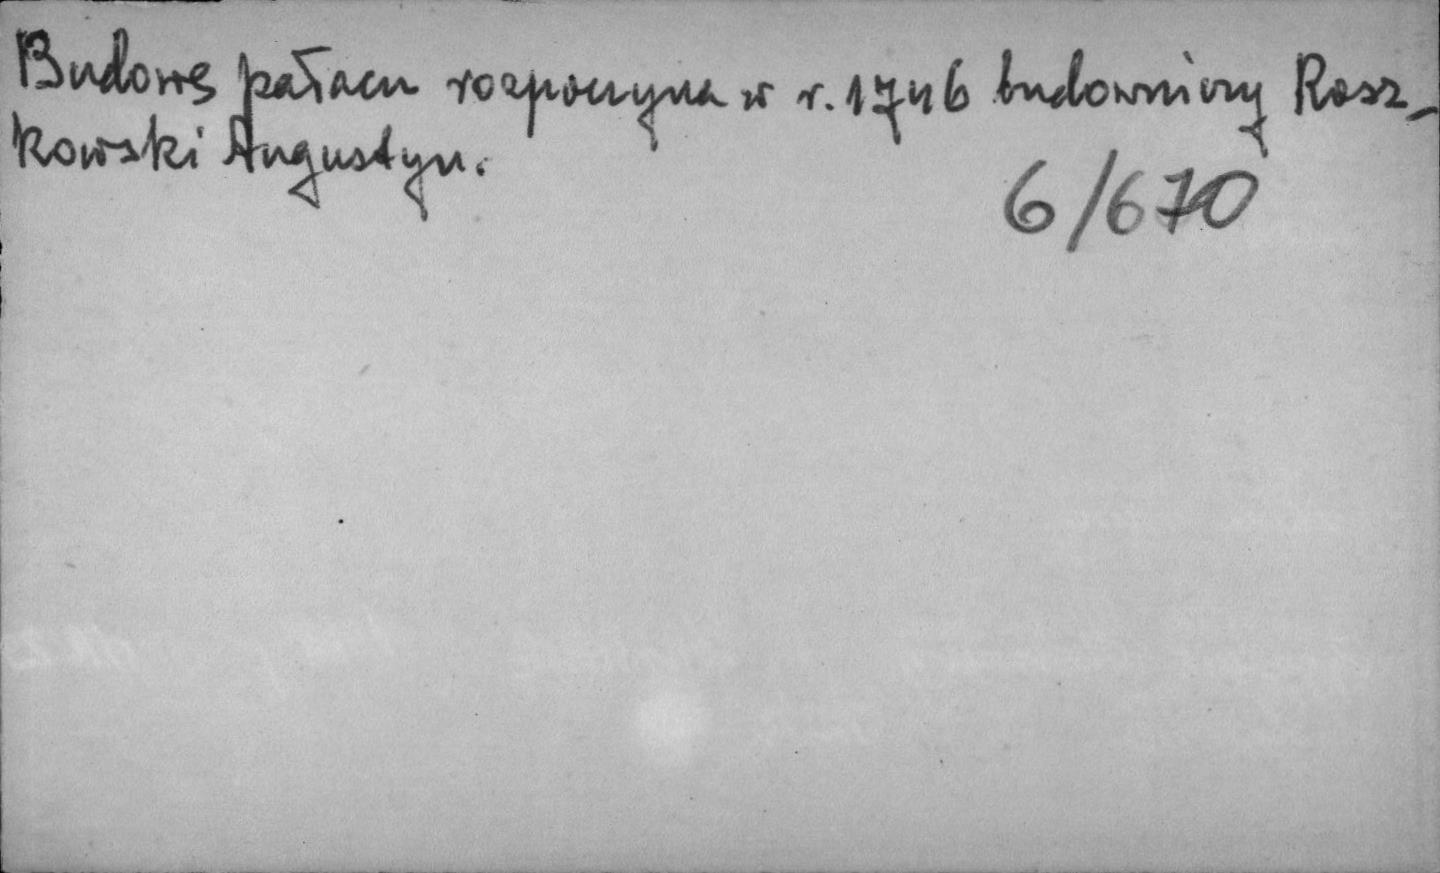 Budowę pałacu rozpoczyna w r. 1746 budowniczy Rosz-
kowski Augustyn.
6/670